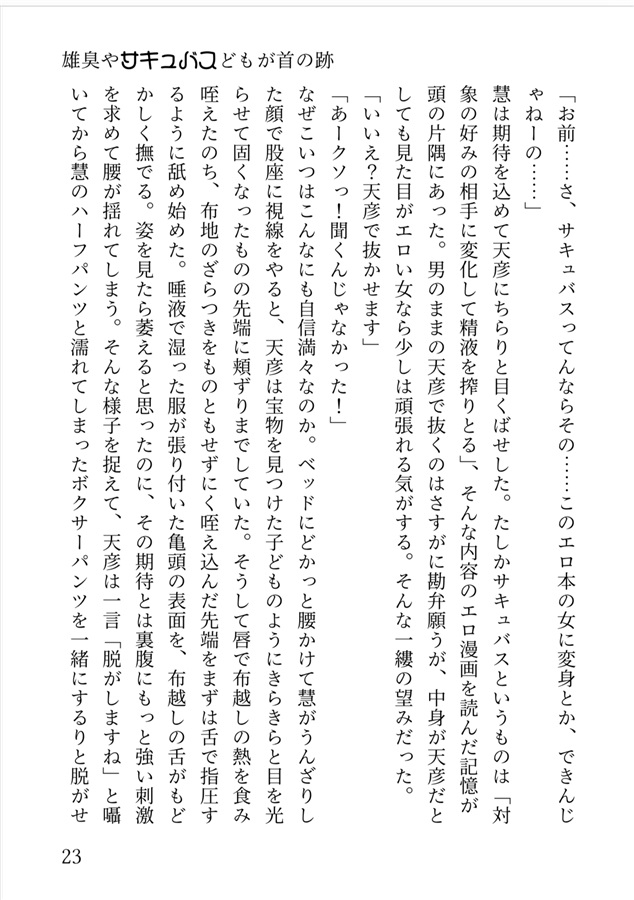 雄臭やサキュバスどもが首の跡
「お前……さ、サキュバスってんならその……このエロ本の女に変身とか、できんじ
ゃねーの……」
慧は期待を込めて天彦にちらりと目くばせした。たしかサキュバスというものは「対
象の好みの相手に変化して精液を搾りとる」、そんな内容のエロ漫画を読んだ記憶が
頭の片隅にあった。男のままの天彦で抜くのはさすがに勘弁願うが、中身が天彦だと
しても見た目がエロい女なら少しは頑張れる気がする。そんな一縷の望みだった。
「いいえ？天彦で抜かせます」
「あークソっ！聞くんじゃなかった！」
なぜこいつはこんなにも自信満々なのか。ベッドにどかっと腰かけて慧がうんざりし
た顔で股座に視線をやると、天彦は宝物を見つけた子どものようにきらきらと目を光
らせて固くなったものの先端に頬ずりまでしていた。そうして唇で布越しの熱を食み
咥えたのち、布地のざらつきをものともせずにく咥え込んだ先端をまずは舌で指圧す
るように舐め始めた。唾液で湿った服が張り付いた亀頭の表面を、布越しの舌がもど
かしく撫でる。姿を見たら萎えると思ったのに、その期待とは裏腹にもっと強い刺激
を求めて腰が揺れてしまう。そんな様子を捉えて、天彦は一言「脱がしますね」と囁
いてから慧のハーフパンツと濡れてしまったボクサーパンツを一緒にするりと脱がせ
23